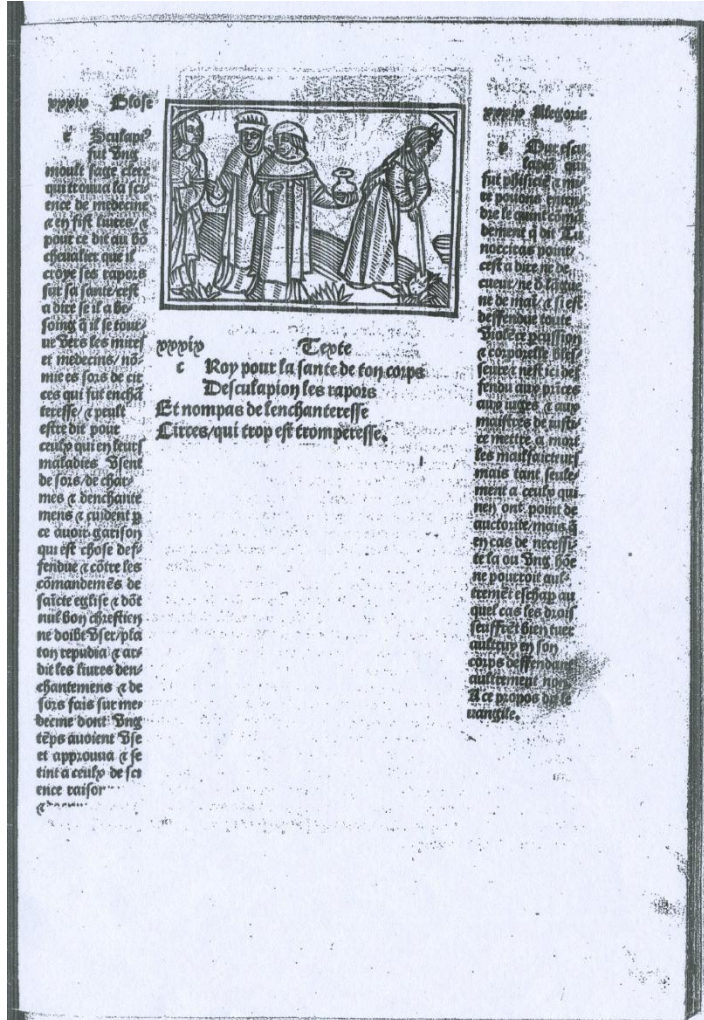 xxxix Glose
Esculapi⁹
fut ung
moult sage clerc
qui trouva la sci
ence de medecine
⁊ en fist livres/ ⁊
pour ce dit au bõ
chevalier que il
croye ses rapors
sur sa sante/ cest
a dire se il a be/
soing q̃ il se tour/
ne vers les mires
et medecins/ nõ
mie es sors de cir
ces qui fut enchã
teresse/ ⁊ peult
estre dit pour
ceulx qui en leurs
maladies usent
de sors/ de char/
mes ⁊ denchante
mens ⁊ cuident p
ce avoir garison
qui est chose def/
fendue ⁊ cõtre les
cõmandemẽs de
saïcte eglise ⁊ dõt
nul bon chrestien
ne doibt user/ pla
ton repudia ⁊ ar/
dit les livres den/
chantemens ⁊ de
sors fais sur me/
decine dont ung
tẽps avoient use
et approuva ⁊ se
tint a ceulx de sci
ence raison
xxxix Texte
Croy pour la sante de ton corps
Desculapion les rapors
Et nompas de lenchanteresse
Circes/ qui trop est tromperesse.
xxxix Alegorie
Par escu
lapes qui
fut phisicië ⁊ mi
re povons enten
dre le quint cõmã
dement q̃ dit Tu
nocciras point/
cest a dire ne de
cueur/ ne d lãgue
ne de mai/ ⁊ si est
deffendue toute
violẽte pcussion
⁊ corporelle bles/
seure ⁊ nest ici def
fendu aux prices
aux iuges ⁊ aux
maistres de iusti/
ce mettre a mort
les malfaicteurs
mais tant seule/
ment a ceulx qui
nen ont point de
auctorite/ mais q̃
en cas de necessi
te la ou ung hõe
ne pourroit aul/
tremẽt eschap au
quel cas les drois
seuffrẽt bien tuer
aultruy en son
corps deffendant
aultrement non
A ce propos dit le
vangile.